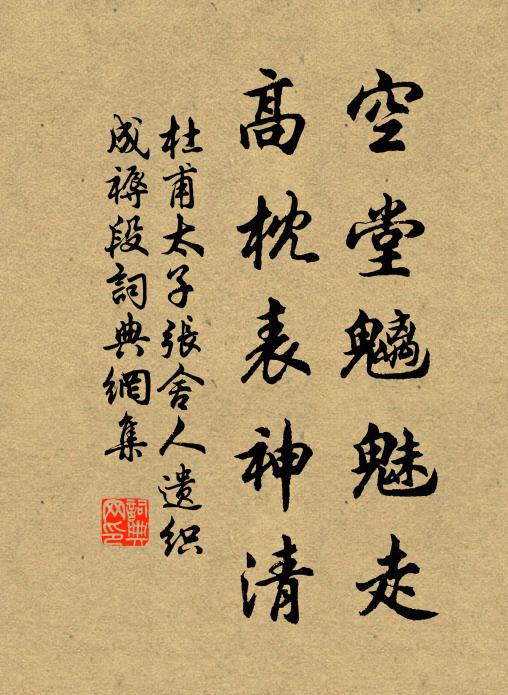 空堂魑魅走
高枕表神清
杜甫太子張舍人遺織
成褥段詞典網集
詞典
网印